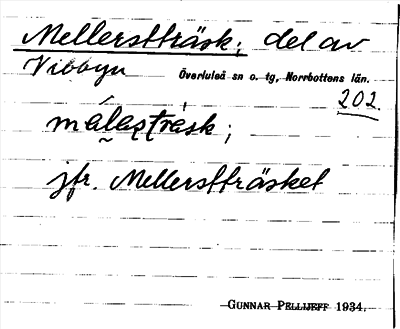 Mellerstträsk; del av
Vibbyn Överluleå sn o. tg, Norrbottens län.
202.
målastrásk;
jfr. Mellerstträsket
GUNNAR PELLIJEFF 1934.